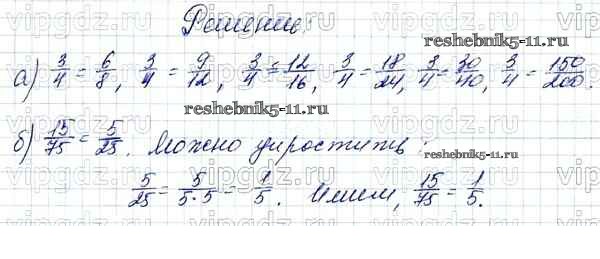 Решение:
reshebnik5-11.ru
а) 3/4 = 6/8, 3/4 = 9/12, 3/4 = 12/16, 3/4 = 18/24, 3/4 = 30/40, 3/4 = 150/200.
reshebnik5-11.ru
б) 15/75 = 5/25. Можно упростить:
reshebnik5-11.ru
5/25 = 5/5·5 = 1/5. Имеем, 15/75 = 1/5.
vipgdz.ru